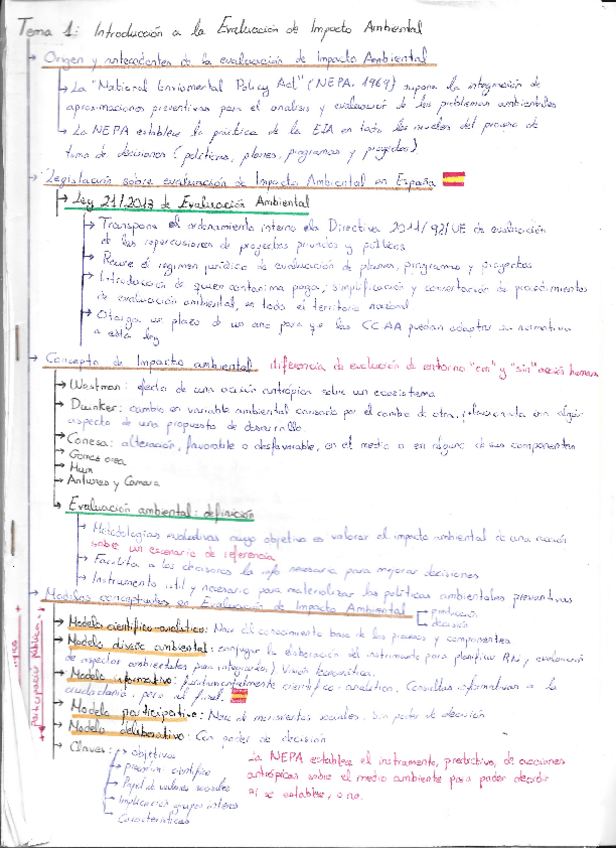 Tema 1: Introducción a la Evaluación de Impacto Ambiental
Origen y antecedentes de la evaluación de Impacto Ambiental
La "National Enviromental Policy Act" (NEPA. 1969) supone la integración de
aproximaciones preventivas para el analisis y evaluación de los problemas ambientales
La NEPA establece la práctica de la EIA en todos los niveles del proceso de
toma de decisiones (políticas, planes, programas y proyectos)
Legislación sobre evaluación de Impacto Ambiental en España
Ley 21/2013 de Evaluación Ambiental
Transpone el ordenamiento interno la Directiva 2011/92/UE de evaluación
de las repercusiones de proyectos privados y públicos
Reune el regimen jurídico de evaluación de planes, programas y proyectos
Introducción de quien contamina paga; simplificación y concertación de procedimientos
de evaluación ambiental, en todo el territorio nacional
Otorga un plazo de un año para q las CCAA puedan adaptar su normativa
a esta ley
Concepto de Impacto ambiental diferencia de evolución de entorno "con" y "sin" acción humana
Westman: efecto de una acción antrópica sobre un ecosistema
Duinker: cambio en variable ambiental causado por el cambio de otra, relacionada con algún
aspecto de una propuesta de desarrollo.
Conesa: alteración, favorable o desfavorable, en el medio o en alguno de sus componentes
Gomez orea
Hum
Antunes y Camara
Evaluación ambiental: definición
Metodologías evaluativas cuyo objetivo es valorar el impacto ambiental de una acción
sobre un escenario de referencia
Facilita a los decisores la info necesaria para mejorar decisiones
Instrumento útil y necesario para materializar las políticas ambientales preventivas
Modelos conceptuales en Evaluación de Impacto Ambiental
predicción
decisión
Participación pública
Modelo científico-analítico: Nace del conocimiento base de los procesos y componentes
Modelo diseño ambiental: conjugar la elaboración del instrumento para planificar RN, y evaluación
de aspectos ambientales para integrarlos) Visión tecnocrática.
Modelo informativo: fundamentalmente científico-analítico. Consultas informativas a la
ciudadanía, pero al final.
Modelo participativo: Nace de movimientos sociales. Sin poder de decisión
Modelo deliberativo: Con poder de decisión
Claves: objetivos
predicción científica
Papel de valores sociales
Implicación grupos interes
Características
La NEPA establece el instrumento, predictivo, de acciones
antrópicas sobre el medio ambiente para poder decidir
si es viable, o no.